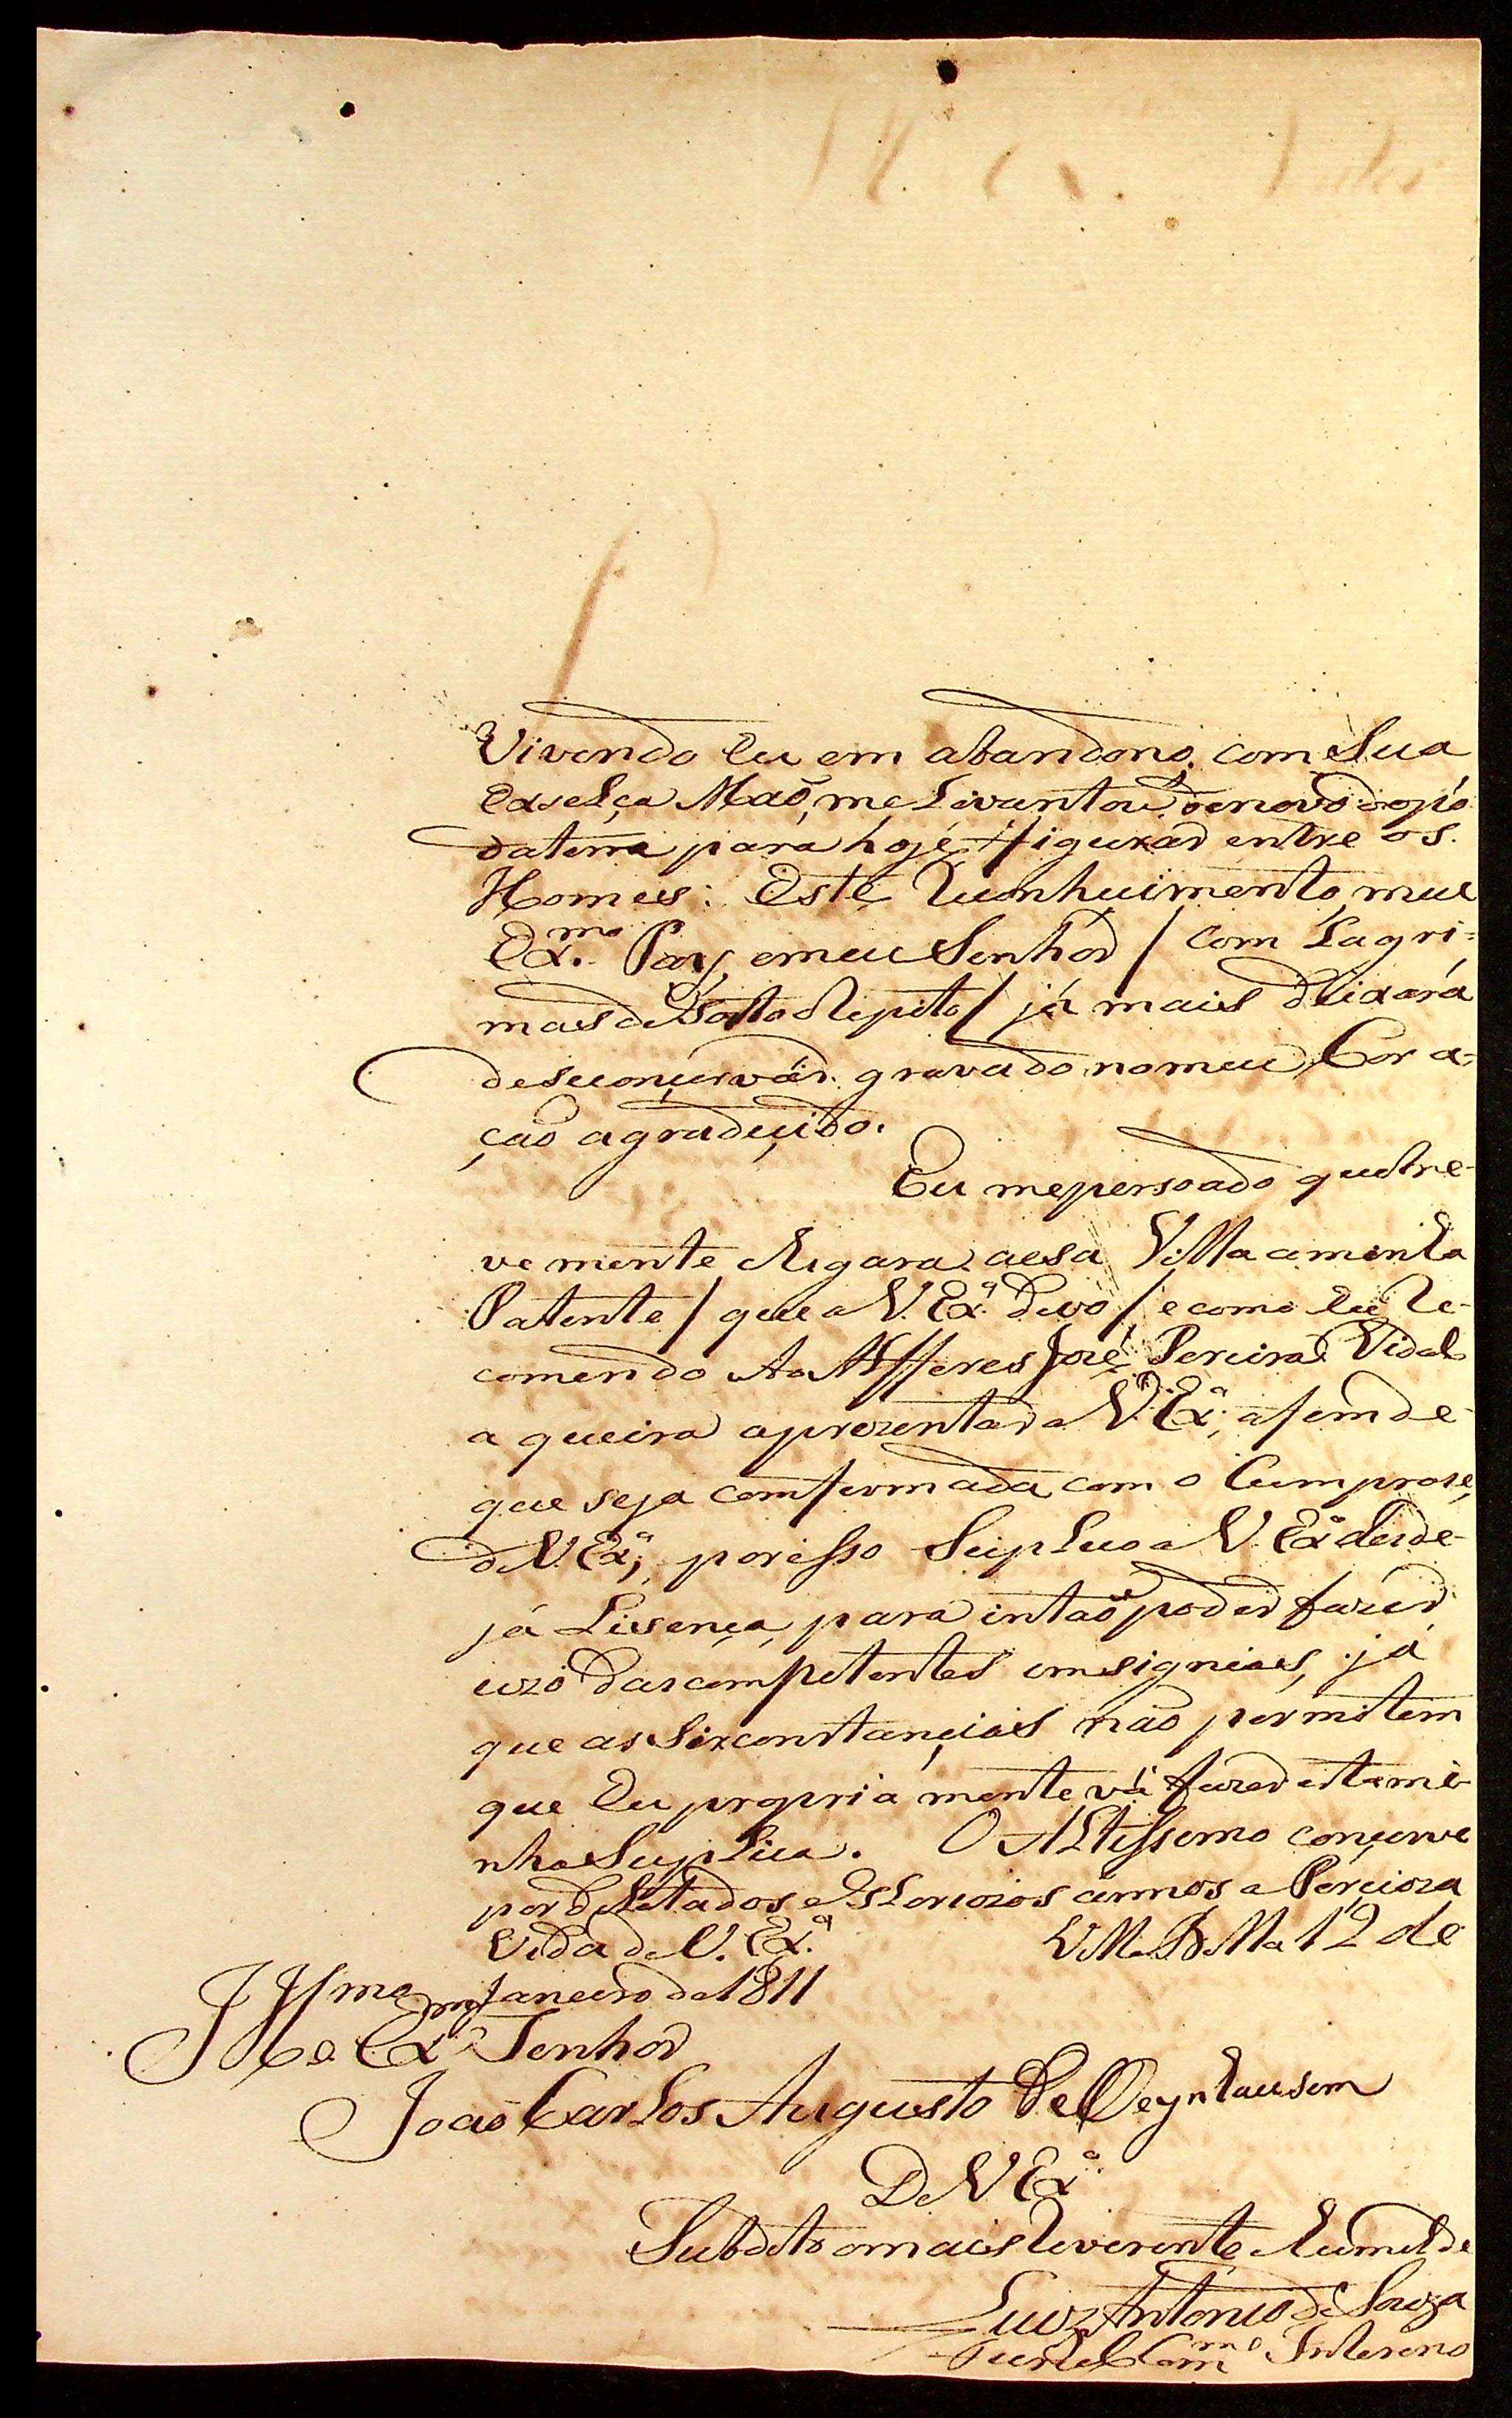 Vivendo Eu em abandono, com Sua
ExselÇa Maõ, me Livantou denovo do pó
daterra para hoje figurar entre os
Homes: Este Cunhuimento, meu
Exmo. Pay, emeu Senhor / Com Lagri=
mas de Repito / já mais dLixará
desuonçervár gravado nomeu Cora=
ção agradeçido.
Eu mepersoado que bre-
vemente xigara aesa Villa aminha
Patente / que a V. Exª. Devo / e como Eu Re-
comendo Ao Alfferes José Pereira Vidal
a queira aprezentar a V. Exª, afim de
que seja comfirmada com o Cumprase,
de V. Exª; porisso SupLico a V. Exª desde-
já Lisença, para intaõ poder fazer
uzo das competentes imsignias, já
que as Sirconstançias não permitem
que Eu propria mente vá fazer esta mi-
nha SupLica. O ALtissimo conçerve
por dilatados e gLoriozos annos a Percioza
Vida de V. Exª. 12 de
Janeiro de 1811
Illmo e Exmo Senhor
João CarLos Augusto De Oeynhausem
De V Exª
Subdito omais Reverente, humilde
Luiz Antonio de Souza
Comº Interino